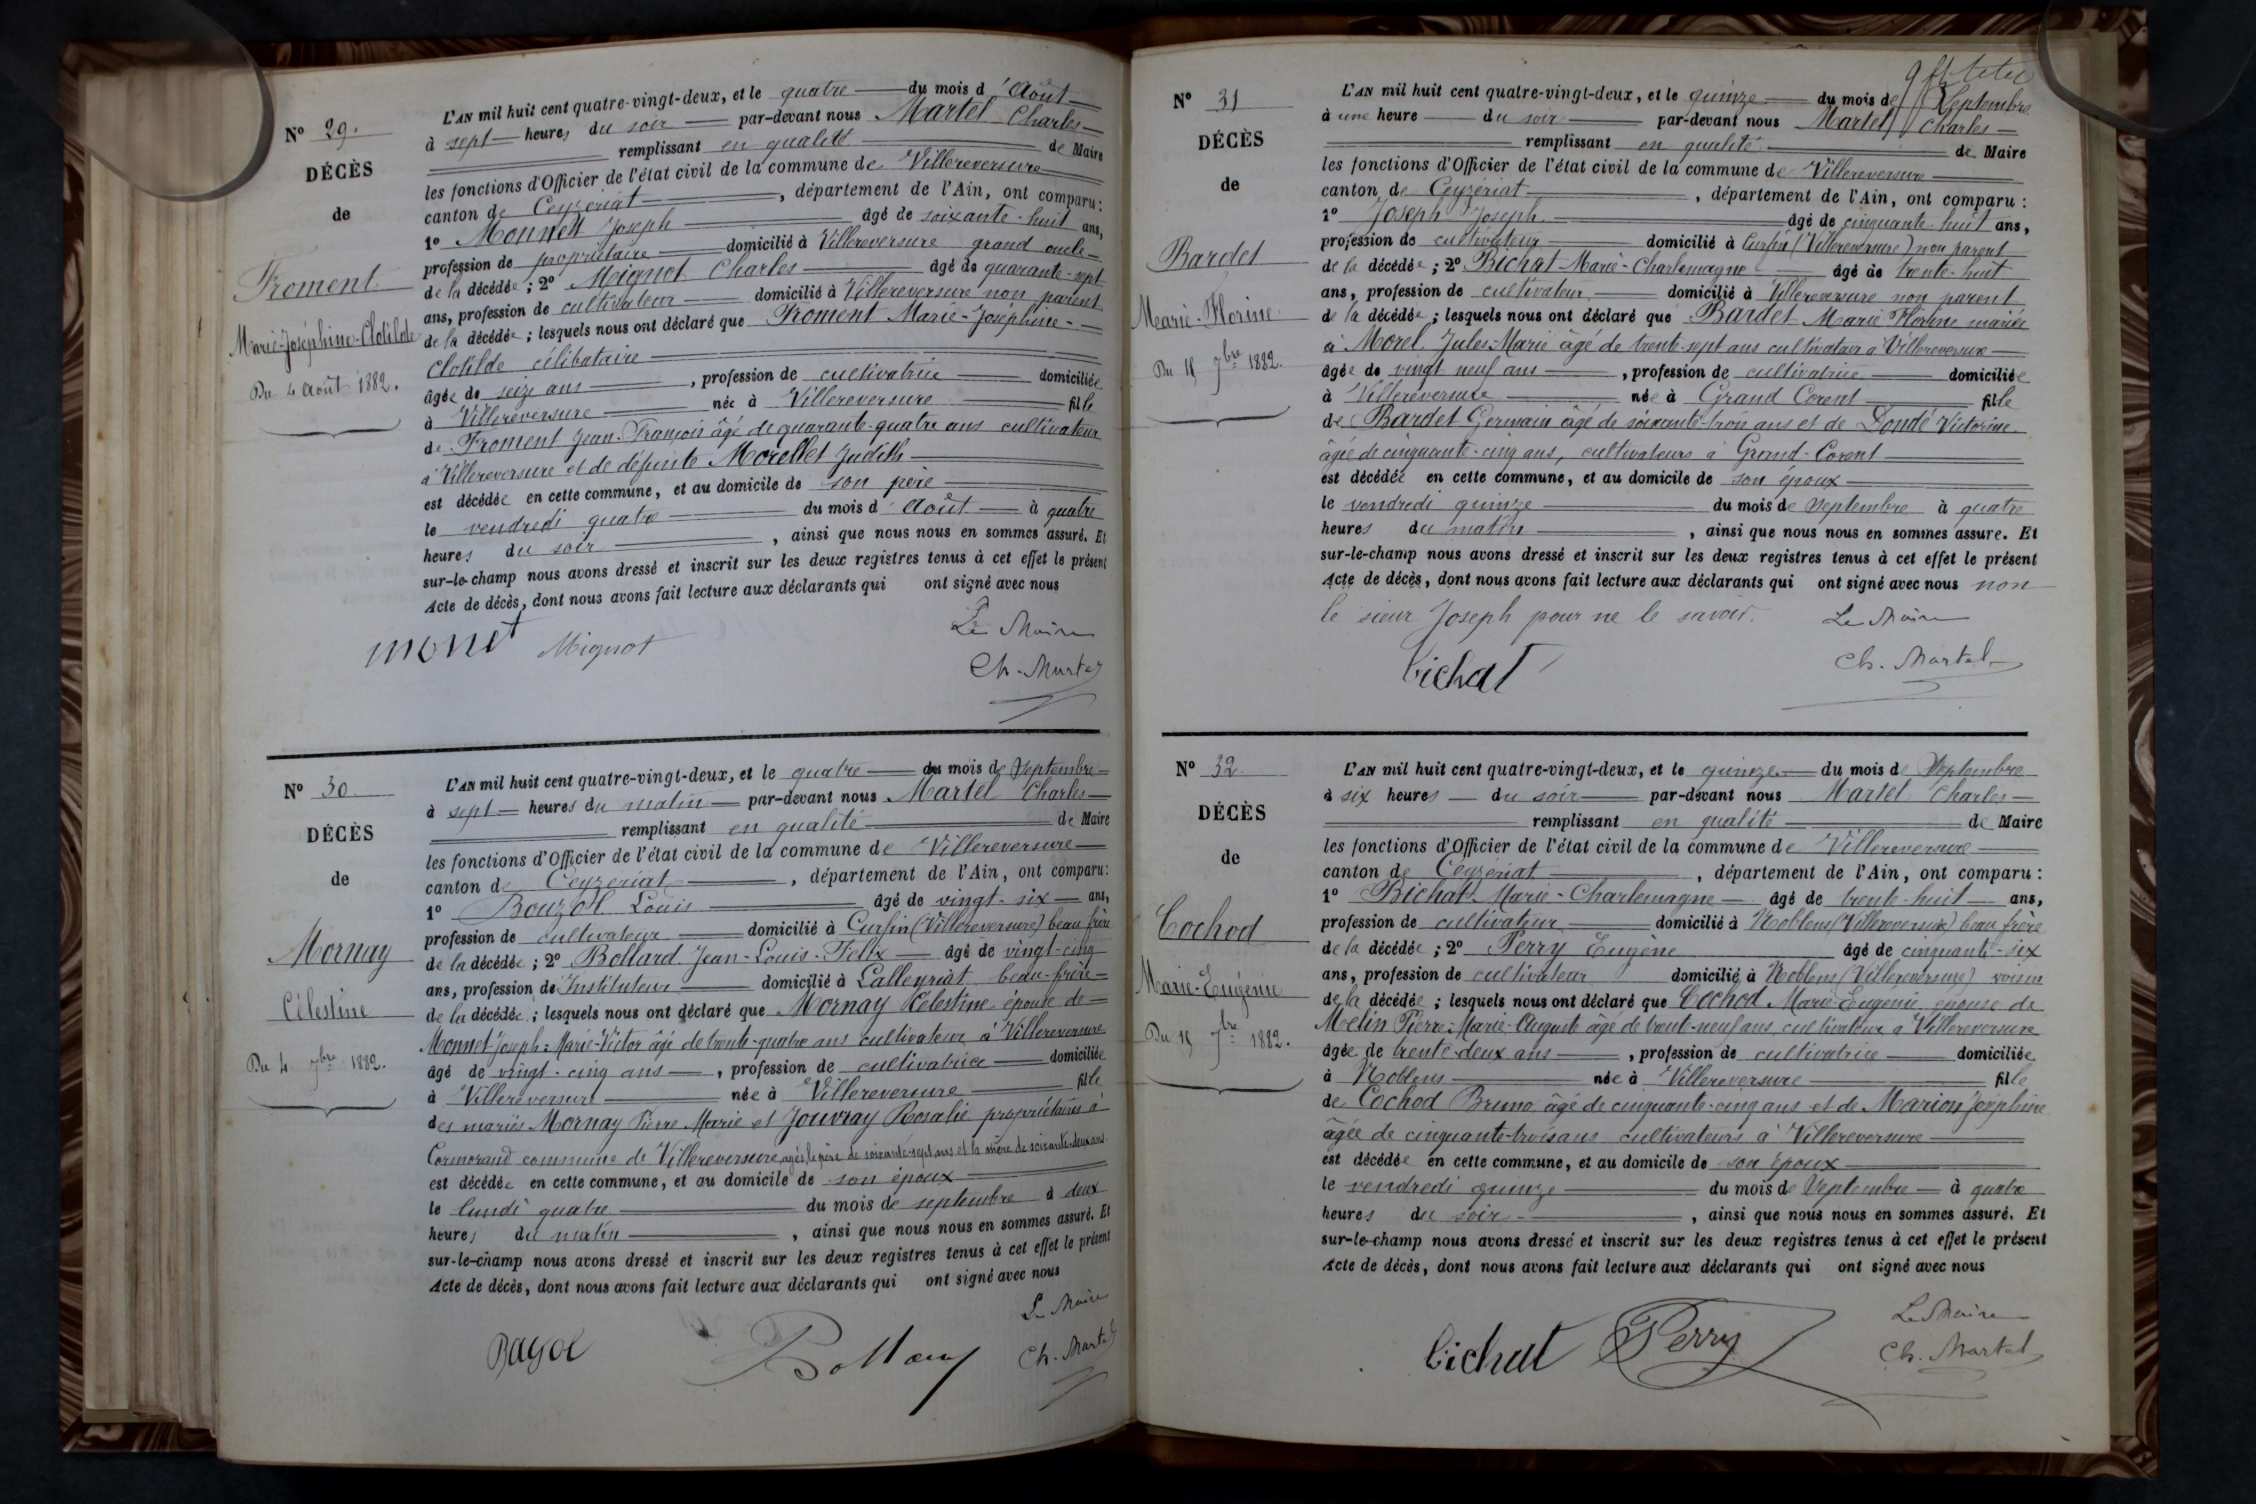 N° 29.
DÉCÈS
de
Froment
Marie-Joséphine-Clotilde
Du 4 Août 1882.
L'AN mil huit cent quatre-vingt-deux, et le quatre du mois d'Août
à sept heures du soir par-devant nous Martel Charles
remplissant en qualité de Maire
les fonctions d'Officier de l'état civil de la commune de Villereversure
canton de Ceyzeriat, département de l'Ain, ont comparu :
1° Monnett Joseph âgé de soixante-huit ans,
profession de propriétaire domicilié à Villereversure grand oncle
de la décédée ; 2° Mignot Charles âgé de quarante-sept
ans, profession de cultivateur domicilié à Villereversure non parent
de la décédée ; lesquels nous ont déclaré que Froment Marie-Joséphine-
Clotilde célibataire
âgée de seize ans, profession de cultivatrice domiciliée
à Villereversure née à Villereversure fille
de Froment Jean-François âgé de quarante-quatre ans cultivateur
à Villereversure et de défunte Morellet Judith
est décédée en cette commune, et au domicile de son père
le vendredi quatre du mois d'Août à quatre
heures du soir, ainsi que nous nous en sommes assuré. Et
sur-le-champ nous avons dressé et inscrit sur les deux registres tenus à cet effet le présent
Acte de décès, dont nous avons fait lecture aux déclarants qui ont signé avec nous
Le Maire
monet Mignot
Ch. Martel
N° 30.
DÉCÈS
de
Mornay
Célestine
Du 4 7bre 1882.
L'AN mil huit cent quatre-vingt-deux, et le quatre du mois de Septembre
à sept heures du matin par-devant nous Martel Charles
remplissant en qualité de Maire
les fonctions d'Officier de l'état civil de la commune de Villereversure
canton de Ceyzeriat, département de l'Ain, ont comparu :
1° Bouzol Louis âgé de vingt-six ans,
profession de cultivateur domicilié à Curfin (Villereversure) beau frère
de la décédée ; 2° Bollard Jean-Louis-Félix âgé de vingt-cinq
ans, profession de Instituteur domicilié à Lalleyriat beau-frère
de la décédée ; lesquels nous ont déclaré que Mornay Célestine épouse de
Monnet Joseph-Marie-Victor âgé de trente-quatre ans cultivateur à Villereversure
âgé de vingt-cinq ans, profession de cultivatrice domiciliée
à Villereversure née à Villereversure fille
des mariés Mornay Pierre Marie et Jouvray Rosalie propriétaires à
Cormorand commune de Villereversure agés, le père de soixante-sept ans et la mère de soixante-deux ans
est décédée en cette commune, et au domicile de son époux
le lundi quatre du mois de septembre à deux
heures du matin, ainsi que nous nous en sommes assuré. Et
sur-le-champ nous avons dressé et inscrit sur les deux registres tenus à cet effet le présent
Acte de décès, dont nous avons fait lecture aux déclarants qui ont signé avec nous
Le Maire
Ch. Martel
N° 31
DÉCÈS
de
Bardet
Marie-Florine
Du 15 7bre 1882.
L'AN mil huit cent quatre-vingt-deux, et le quinze du mois de Septembre
à une heure du soir par-devant nous Martel Charles
remplissant en qualité de Maire
les fonctions d'Officier de l'état civil de la commune de Villereversure
canton de Ceyzériat, département de l'Ain, ont comparu :
1° Joseph Joseph âgé de cinquante-huit ans,
profession de cultivateur domicilié à Curfin (Villereversure) non parent
de la décédée ; 2° Bichat Marie-Charlemagne âgé de trente-huit
ans, profession de cultivateur domicilié à Villereversure non parent
de la décédée ; lesquels nous ont déclaré que Bardet Marie Florine mariée
à Morel Jules-Marie âgé de trente-sept ans cultivateur à Villereversure
âgée de vingt neuf ans, profession de cultivatrice domiciliée
à Villereversure née à Grand Corent fille
de Bardet Germain âgé de soixante-trois ans et de Dondé Victorine
âgée de cinquante-cinq ans, cultivateurs à Grand-Corent
est décédée en cette commune, et au domicile de son époux
le vendredi quinze du mois de Septembre à quatre
heures du matin, ainsi que nous nous en sommes assuré. Et
sur-le-champ nous avons dressé et inscrit sur les deux registres tenus à cet effet le présent
Acte de décès, dont nous avons fait lecture aux déclarants qui ont signé avec nous non
le sieur Joseph pour ne le savoir.
Le Maire
bichat
Ch. Martel
N° 32
DÉCÈS
de
Cochod
Marie-Eugénie
Du 15 7bre 1882.
L'AN mil huit cent quatre-vingt-deux, et le quinze du mois de Septembre
à six heures du soir par-devant nous Martel Charles
remplissant en qualité de Maire
les fonctions d'Officier de l'état civil de la commune de Villereversure
canton de Ceyzériat, département de l'Ain, ont comparu :
1° Bichat Marie-Charlemagne âgé de trente-huit ans,
profession de cultivateur domicilié à Noblens (Villereversure) beau frère
de la décédée ; 2° Perry Eugène âgé de cinquante-six
ans, profession de cultivateur domicilié à Noblens (Villereversure) voisin
de la décédée ; lesquels nous ont déclaré que Cochod Marie Eugénie épouse de
Melin Pierre-Marie-Auguste âgé de trent-neuf ans, cultivateur à Villereversure
âgée de trente-deux ans, profession de cultivatrice domiciliée
à Noblens née à Villereversure fille
de Cochod Bruno âgé de cinquante-cinq ans et de Marion Joséphine
âgée de cinquante-trois ans cultivateurs à Villereversure
est décédée en cette commune, et au domicile de son époux
le vendredi quinze du mois de Septembre à quatre
heures du soir, ainsi que nous nous en sommes assuré. Et
sur-le-champ nous avons dressé et inscrit sur les deux registres tenus à cet effet le présent
Acte de décès, dont nous avons fait lecture aux déclarants qui ont signé avec nous
Le Maire
bichat Perry
Ch. Martel